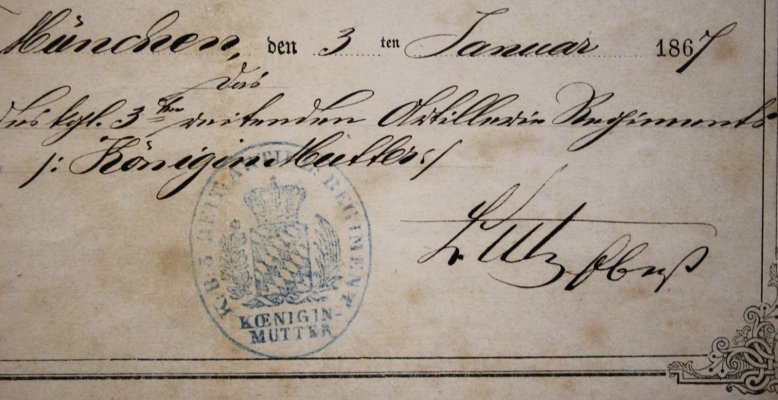 München, den 3 ten Januar 1867
Das
des kgl. 3ten reitenden Artillerie Regiments
/: Königin Mutter :/
K. B. 3. REIT. ARTILL. REGIMENT
KŒNIGIN-
MUTTER
Lutz Oberst